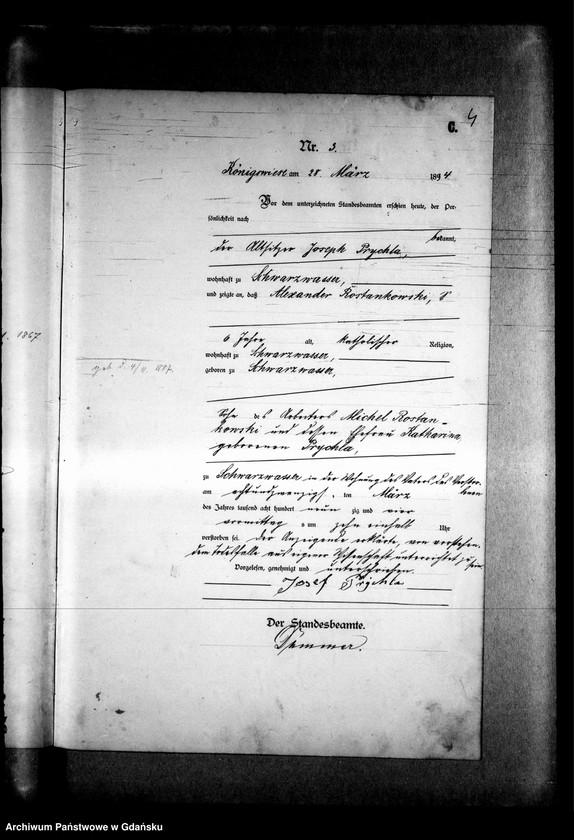 C. 4
Nr. 3.
Königswiese am 28 März 1894
Vor dem unterzeichneten Standesbeamten erschien heute, der Per-
sönlichkeit nach
bekannt,
der Altsitzer Joseph Prychla,
wohnhaft zu Schwarzwasser,
und zeigte an, daß Alexander Rostankowski,
6 Jahre alt, katholischer Religion,
wohnhaft zu Schwarzwasser,
geboren zu Schwarzwasser,
1867
geb. d. 4/11. 1887.
Sohn des Arbeiters Michel Rostan-
kowski und dessen Ehefrau Katharina
geborenen Prychla,
zu Schwarzwasser in der Wohnung des Vaters des Verstor-
benen
am achtundzwanzigs ten März
des Jahres tausend acht hundert neun zig und vier
vormittag s um zehn einhalb Uhr
verstorben sei. Der Anzeigende erklärte, von vorstehen-
dem Todesfalle aus eigener Wissenschaft unterrichtet zu sein.
Vorgelesen, genehmigt und unterschrieben.
Josef Prychla
Der Standesbeamte.
Archiwum Państwowe w Gdańsku